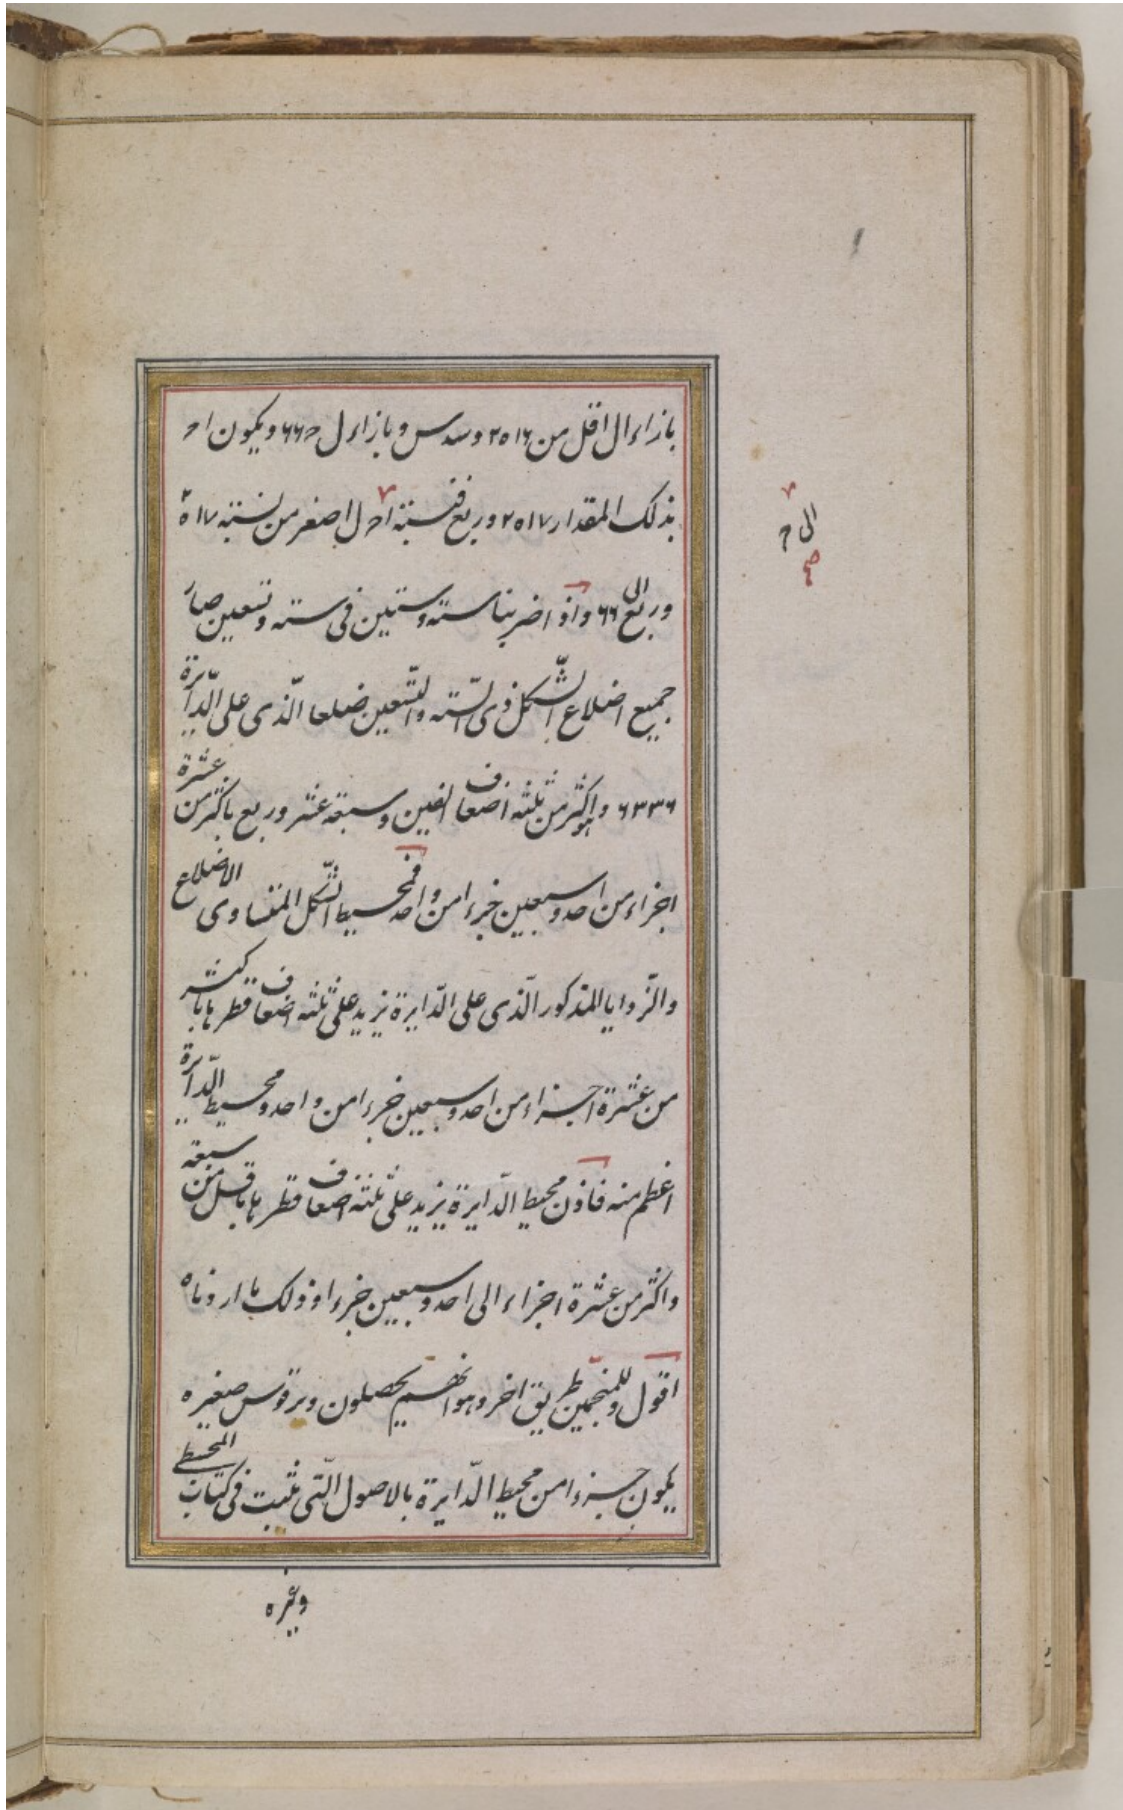 بازاء ال اقل من ٢٠١٦ وسدس وبازاء ل ح ٦٦ ويكون ا ح
بذلك المقدار ٢٠١٧ وربع فنسبة ا ح ل اصغر من نسبة ٢٠١٧
الى ح
صح
وربع الى ٦٦ واذا ضربنا ستة وستين فى ستة وتسعين صار
جميع اضلاع الشّكل ذى السّتة والتّسعين ضلعا الّذى على الدّايرة
٦٣٣٦ وهو اكثر من ثلثة اضعاف الفين وسبعة عشر وربع باكثر من عشرة
اجزاء من احد وسبعين جزءا من واحد فمحيط الشّكل المتساوى الاضلاع
والزّوايا المذكور الّذى على الدّايرة يزيد على ثلثة اضعاف قطرها باكثر
من عشرة اجزاء من احد وسبعين جزءا من واحد ومحيط الدّايرة
اعظم منه فاذن محيط الدّايرة يزيد على ثلثة اضعاف قطرها باقل من سبعة
واكثر من عشرة اجزاء الى احد وسبعين جزءا وذلك ما اردناه
اقول وللمنجّمين طريق اخر وهو انهم يحصلون وتر قوس صغيره
يكون جزءا من محيط الدّايرة بالاصول الّتى تثبت فى كتاب المجسطى
وغيره